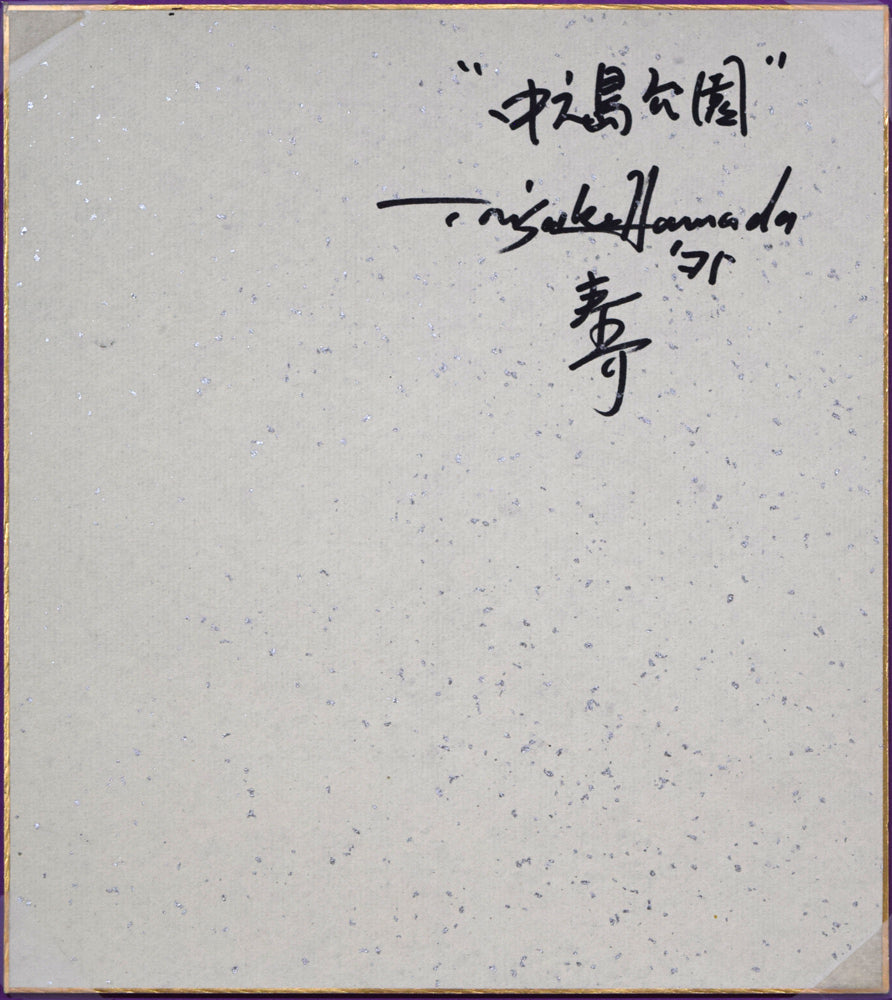 "中之島公園"
Taisuke Hamada
'75
寿